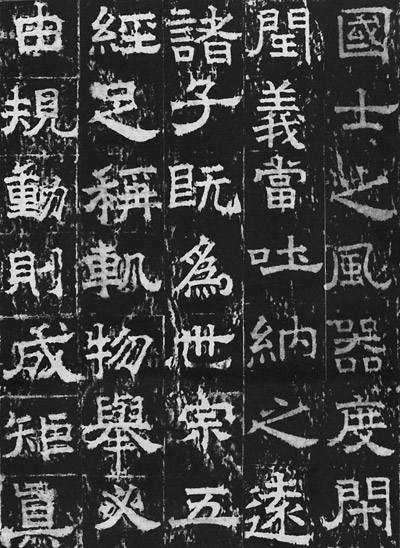 國士之風器度閑
閏義當吐納之遠
諸子既為世宗五
經足稱軌物舉必
由規動則成矩真